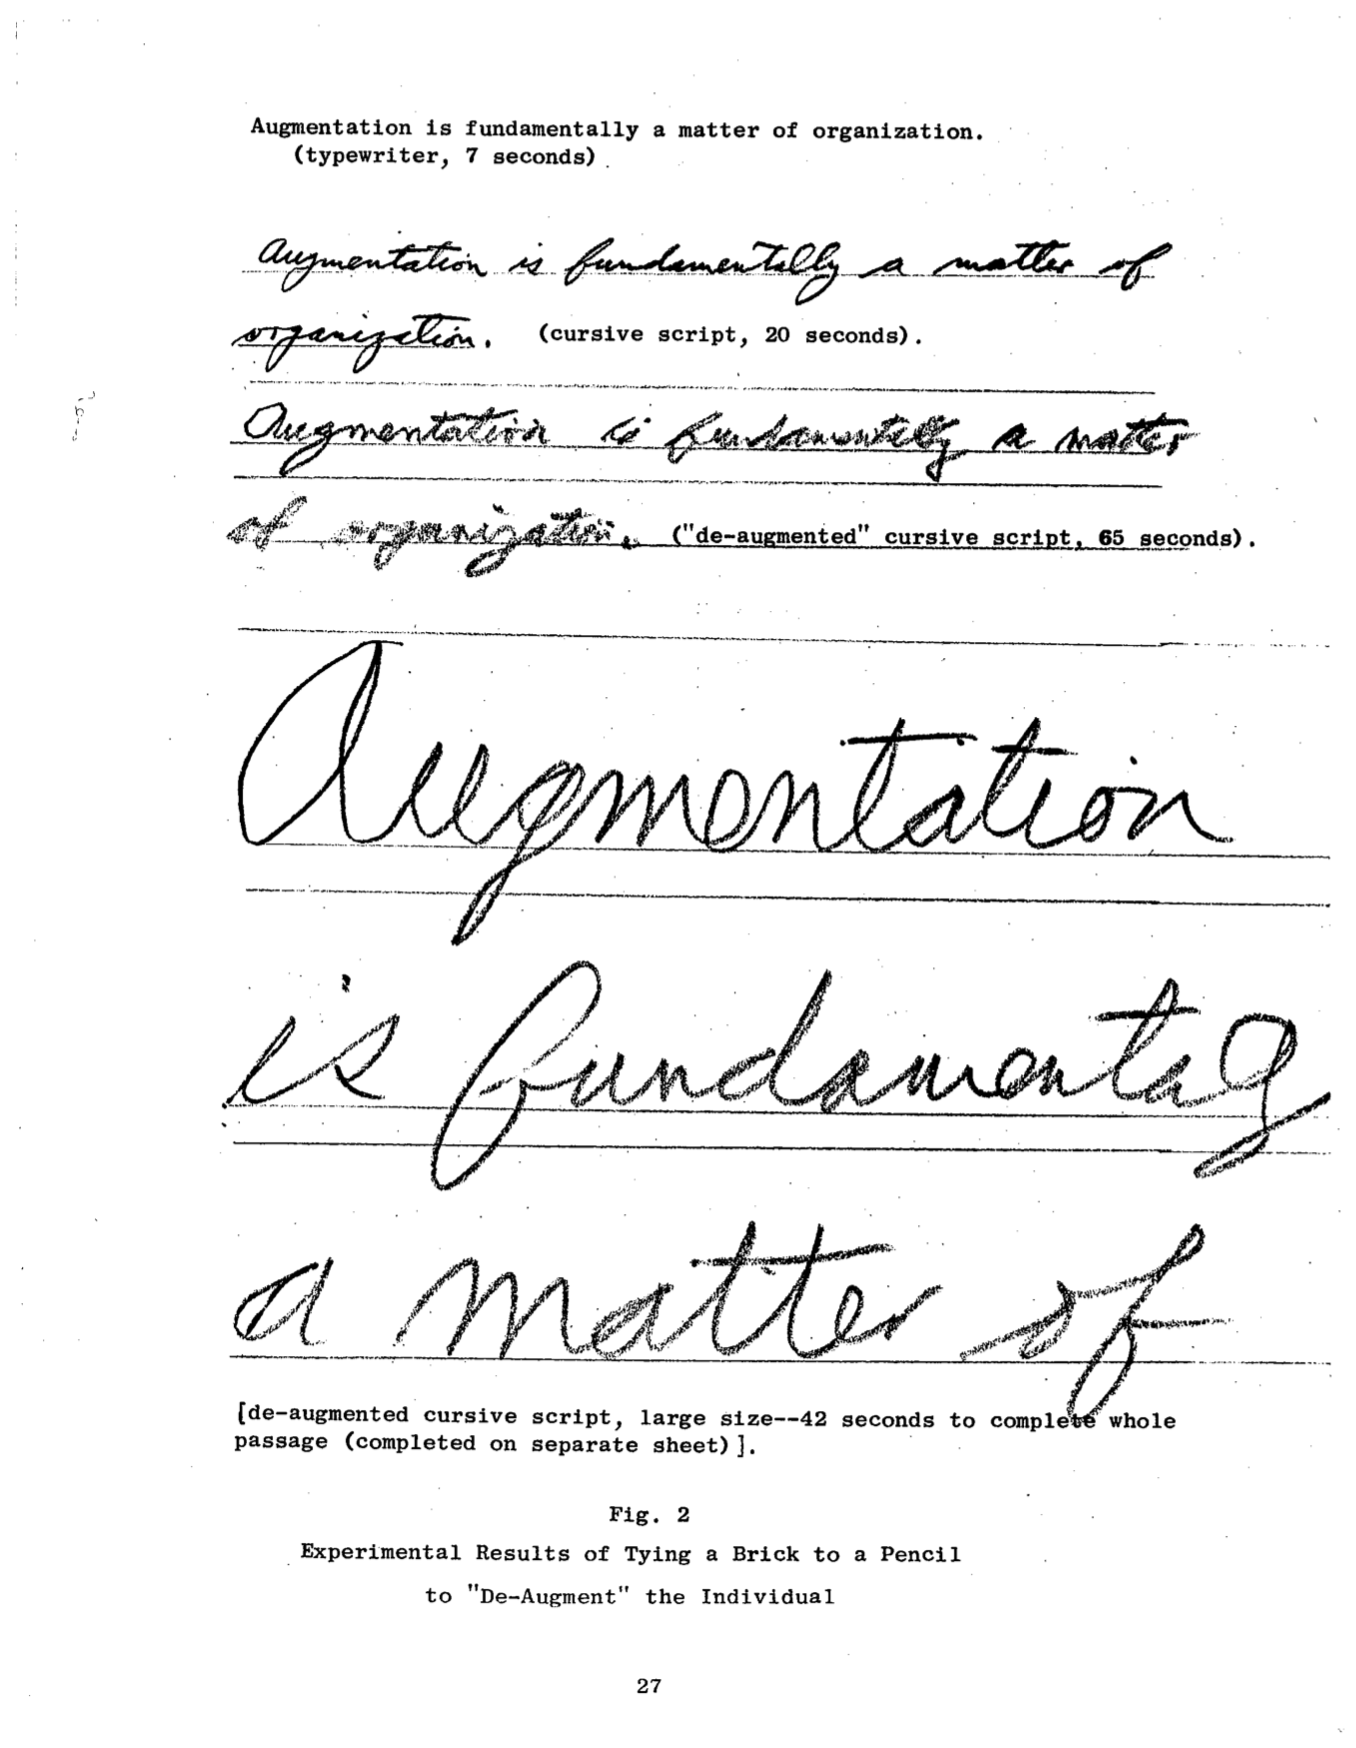 Augmentation is fundamentally a matter of organization.
(typewriter, 7 seconds)
Augmentation is fundamentally a matter of
organization. (cursive script, 20 seconds).
Augmentation is fundamentally a matter
of organization. ("de-augmented" cursive script, 65 seconds).
Augmentation
is fundamentally
a matter of
[de-augmented cursive script, large size--42 seconds to complete whole
passage (completed on separate sheet)].
Fig. 2
Experimental Results of Tying a Brick to a Pencil
to "De-Augment" the Individual
27